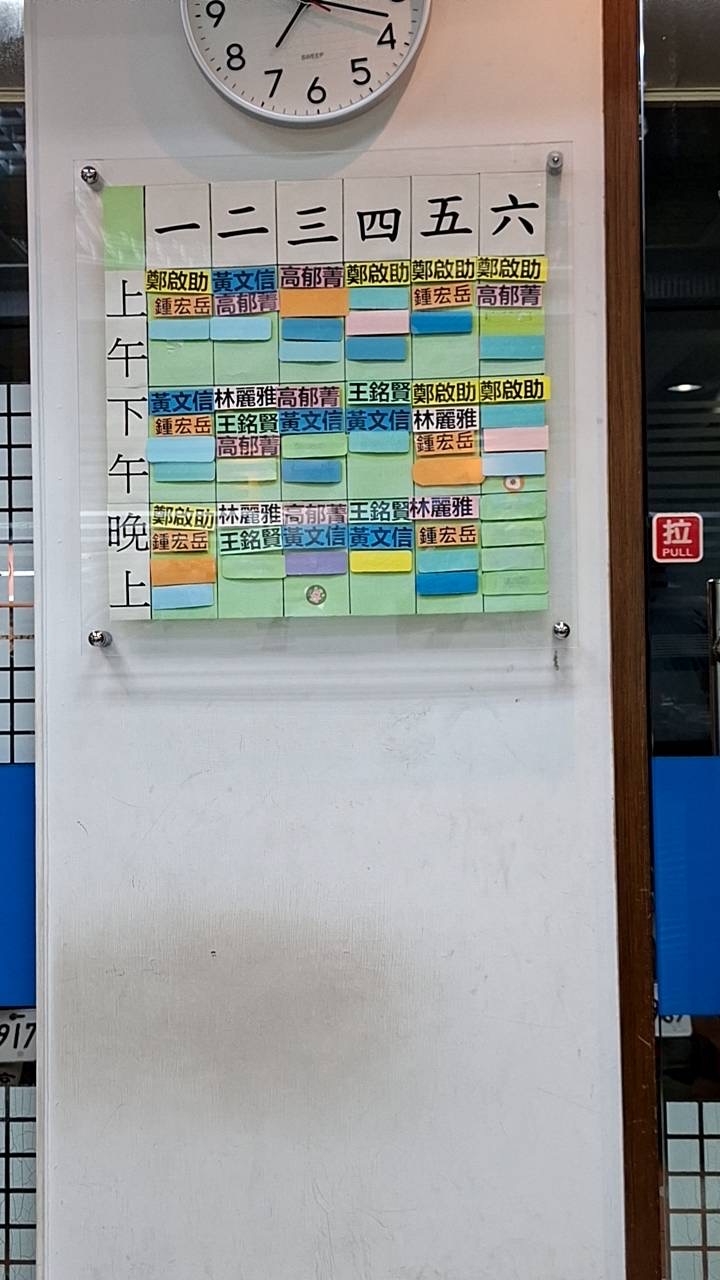 9 8 7 6 5 4
SWEEP
一 二 三 四 五 六
上午
鄭啟助 黃文信 高郁菁 鄭啟助 鄭啟助 鄭啟助
鍾宏岳 高郁菁 鍾宏岳 高郁菁
下午
黃文信 林麗雅 高郁菁 王銘賢 鄭啟助 鄭啟助
鍾宏岳 王銘賢 黃文信 黃文信 林麗雅
高郁菁 鍾宏岳
晚上
鄭啟助 林麗雅 高郁菁 王銘賢 林麗雅
鍾宏岳 王銘賢 黃文信 黃文信 鍾宏岳
拉
PULL
917